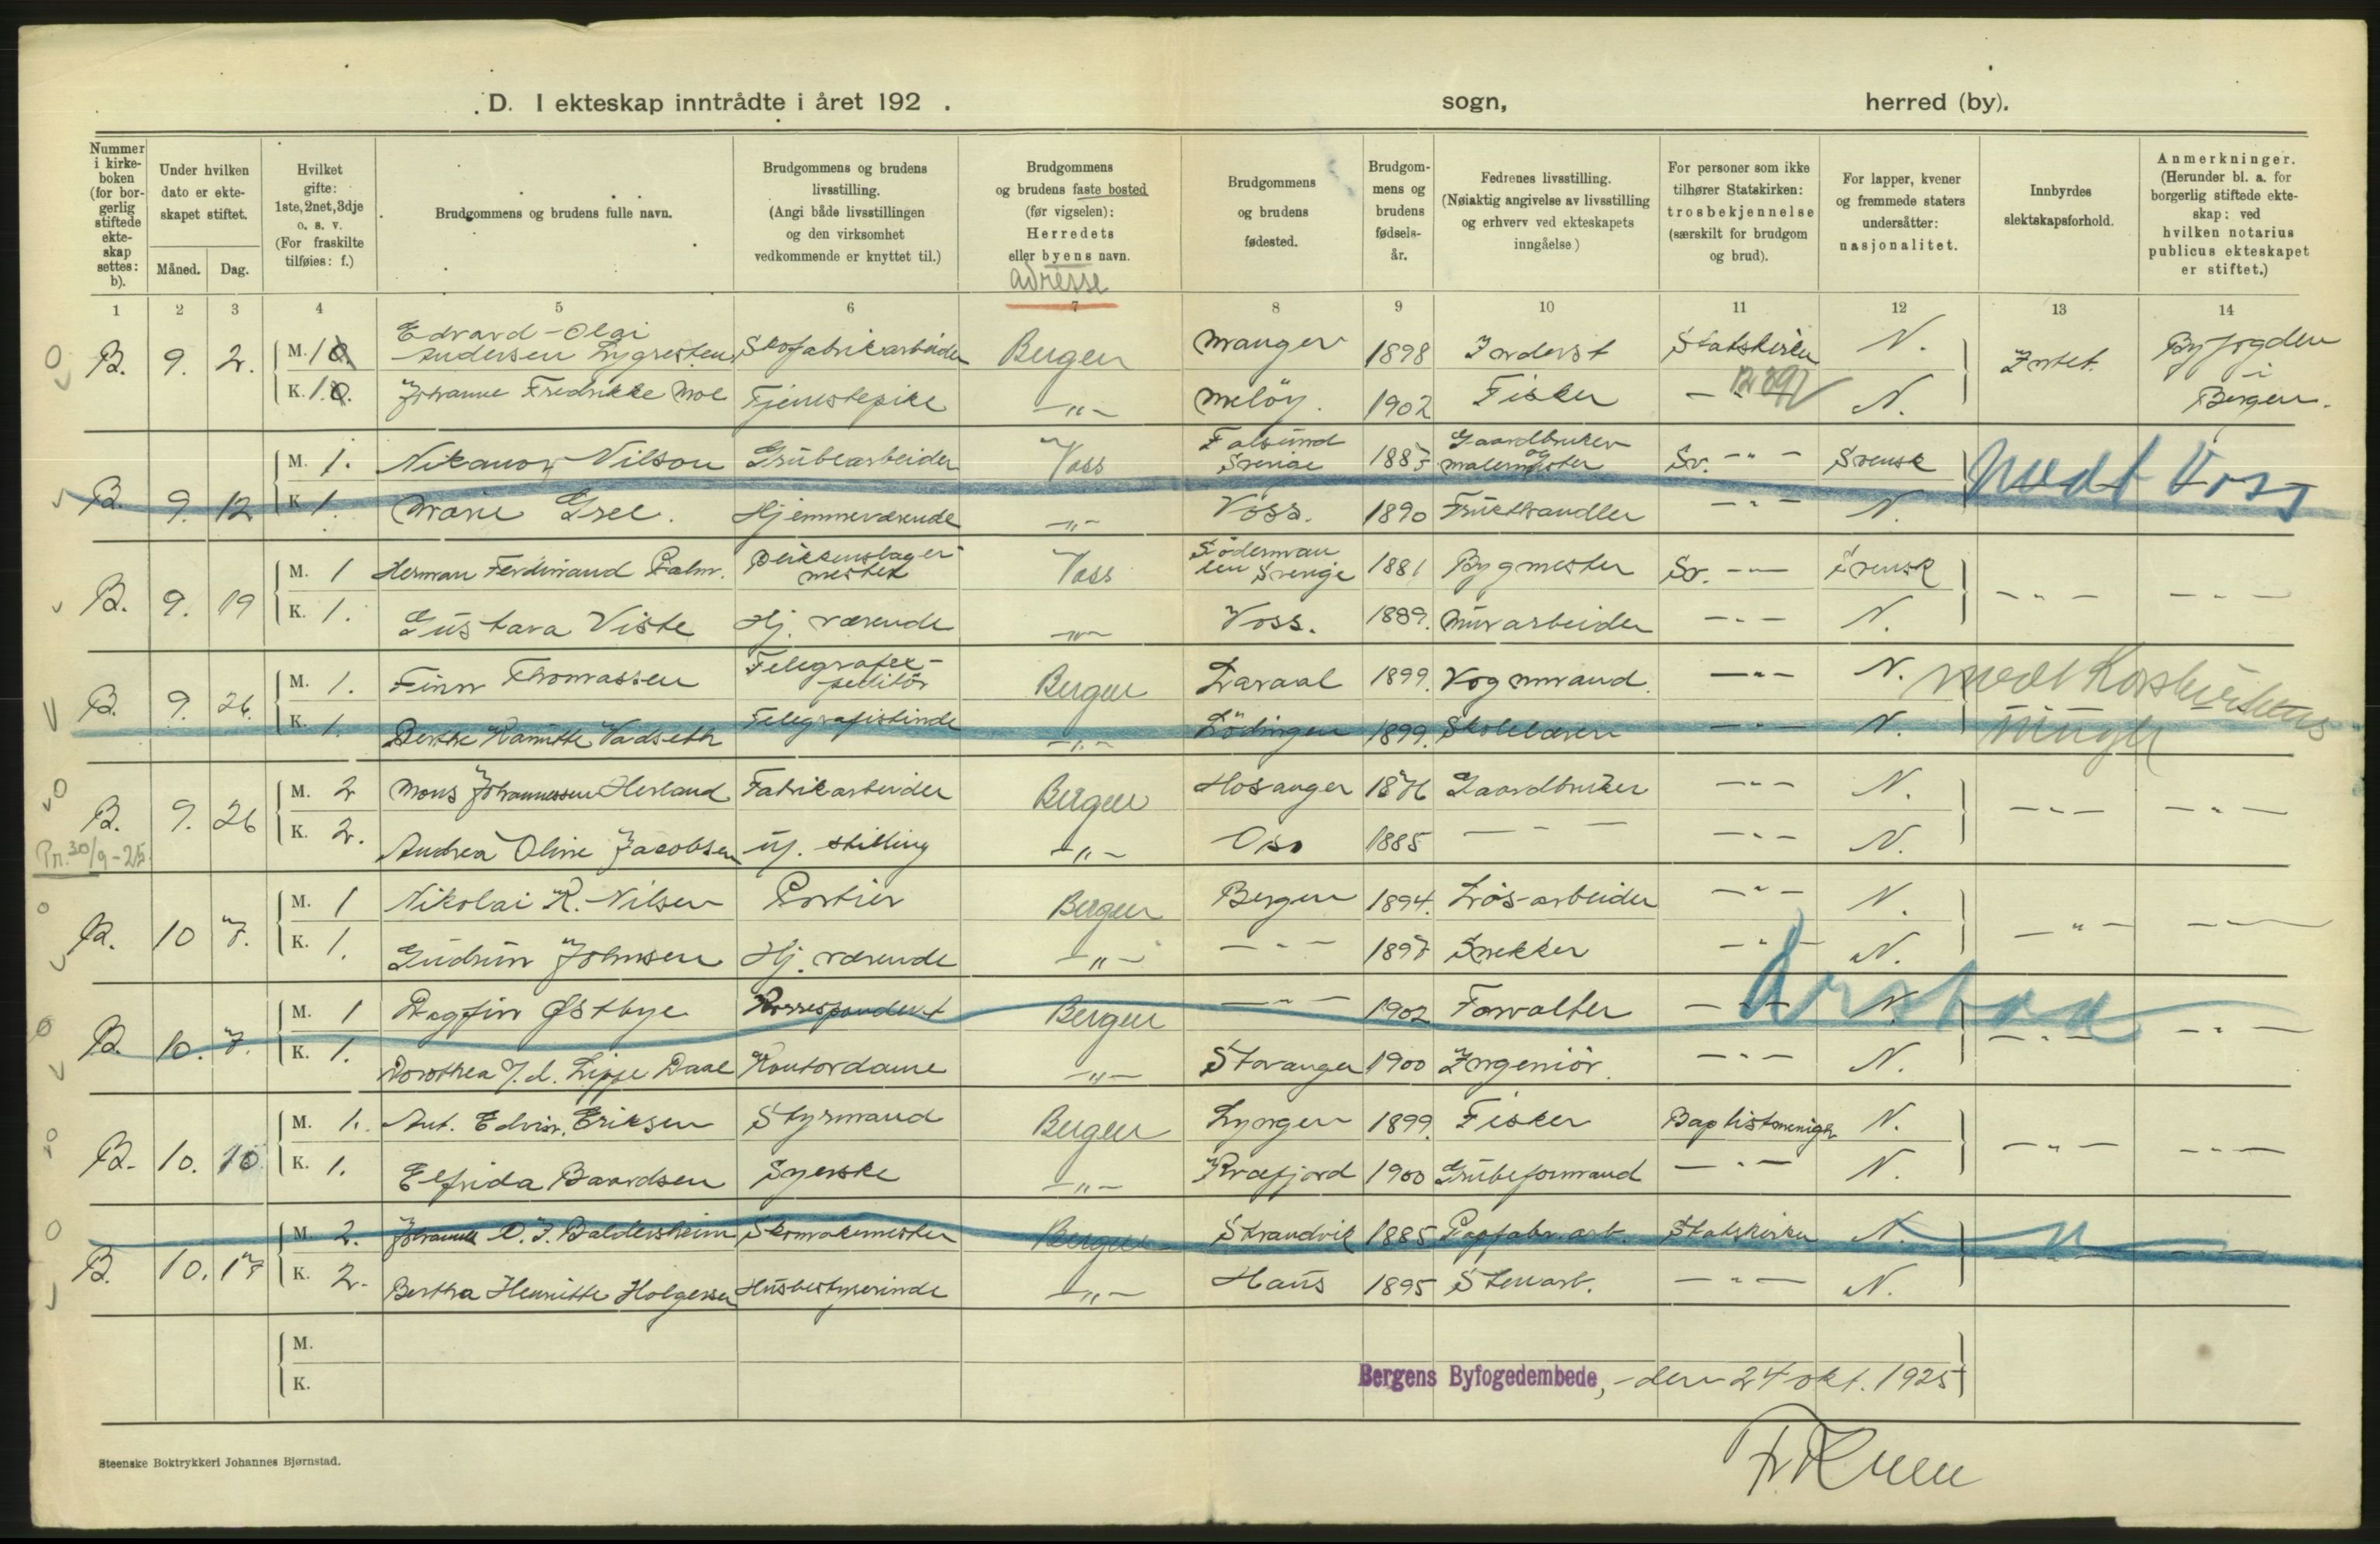 D. I ekteskap inntrådte i året 192 . sogn, herred (by).
Nummer i kirkeboken (for borgerlig stiftede ekteskap settes: b).
Under hvilken dato er ekteskapet stiftet.
Måned. Dag.
Hvilket gifte: 1ste, 2net, 3dje o. s. v. (For fraskilte tilføies: f.)
Brudgommens og brudens fulle navn.
Brudgommens og brudens livsstilling. (Angi både livsstillingen og den virksomhet vedkommende er knyttet til.)
Brudgommens og brudens faste bosted (før vigselen): Herredets eller byens navn.
adresse
Brudgommens og brudens fødested.
Brudgommens og brudens fødselsår.
Fedrenes livsstilling. (Nøiaktig angivelse av livsstilling og erhverv ved ekteskapets inngåelse)
For personer som ikke tilhører Statskirken: trosbekjennelse (særskilt for brudgom og brud).
For lapper, kvener og fremmede staters undersåtter: nasjonalitet.
Innbyrdes slektskapsforhold.
Anmerkninger. (Herunder bl. a. for borgerlig stiftede ekteskap: ved hvilken notarius publicus ekteskapet er stiftet.)
1 2 3 4 5 6 7 8 9 10 11 12 13 14
B. 9. 2. M. 1 Edvard Olai Andersen Lygresten Skofabrikarbeider Bergen Manger 1898 Inderst Statskirken N. Intet. Byfogden i Bergen.
K. 1. Johanne Fredrikke Moe Tjenestepike -„- Meløy. 1902 Fisker - N.
B. 9. 12 M. 1. Nikanor Nilson Grubearbeider Voss Sverige 1887 Gaardbruker og malermester Sv. -„- Svensk Medt Voss
K. 1. Marie Gree. Hjemmeværende -„- Voss. 1890 Frukthandler -„- N.
B. 9. 19 M. 1 Herman Ferdinand Palm. Voss Söderman len Sverige 1881 Bygmester Sv. -„- Svensk -„- -„-
K. 1. Gustava Viste Hj. værende -„- Voss. 1889. Murarbeider -„- N.
B. 9. 26. M. 1. Finn Thomassen Telegrafex-peditör Bergen 1899. Vognmand. -„- N. medt Korskirkens
K. 1. Berthe Kamitte Vadseth Telegrafistinde -„- Lödingen 1899. Skolelærer -„- N.
B. 9. 26 M. 2 Mons Johannessen Herland Fabrikarbeider Bergen Hosanger 1876 Gaardbruker -„- N. -„- -„-
Pn. 30/9-25
K. 2. Andrea Oline Jacobsen u/. stilling -„- Oso 1885 - - - -„- N.
B. 10 7. M. 1 Nikolai R. Nilsen Portier Bergen Bergen 1894. Løs-arbeider -„- N. -„- -„-
K. 1. Gudrun Johnsen Hj. værende -„- -„- 1897 Snekker -„- N.
B. 10. 7. M. 1 Dagfin Østbye Korrespondent Bergen -„- 1902 Forvalter -„- N. Årstad -„- -„-
K. 1. Dorothea v. d. Lippe Daae Kontordame -„- Stavanger 1900 Ingeniör. -„- N.
B. 10. 10. M. 1. Ant. Edvin Eriksen Styrmand Bergen Lyngen 1899. Fisker Baptistmenigh N. -„- -„-
K. 1. Elfrida Baardsen Syerske -„- Kvæfjord 1900 Grubeformand -„- N.
B. 10. 17 M. 2. Johannes O. J. Baldersheim Skomakermester Bergen Strandvik 1885 Papfabr. arb. Statskirken N. -„- -„-
K. 2. Bertha Henriette Holgersen Husbestyrerinde -„- Haus 1895 Stenarb. -„- N.
M.
K.
Bergens Byfogedembede, den 24 okt. 1925
Steenske Boktrykkeri Johannes Bjørnstad.